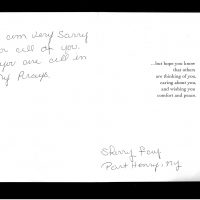 I am very Sarry
for all of you.
you are all in
my Prays.
...but hope you know
that others
are thinking of you,
caring about you,
and wishing you
comfort and peace.
Sherry
Port Henry, NY